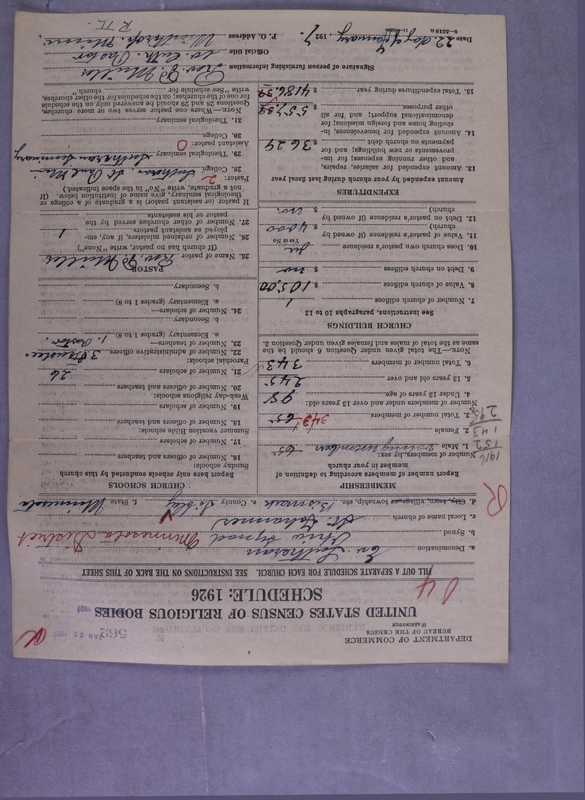 DEPARTMENT OF COMMERCE
BUREAU OF THE CENSUS
WASHINGTON
UNITED STATES CENSUS OF RELIGIOUS BODIES
SCHEDULE: 1926
FILL OUT A SEPARATE SCHEDULE FOR EACH CHURCH. SEE INSTRUCTIONS ON THE BACK OF THIS SHEET
a. Denomination Ev. Lutheran
b. Synod Ohio Synod Minnesota District
c. Local name of church St Johannes
d. City, town, village, or township, etc. Bismark e. County Sibley f. State Minnesota
MEMBERSHIP
Report number of members according to definition of member in your church
Number of members, by sex:
1. Male
2. Female
3. Total number of members
Number of members under and over 13 years old:
4. Under 13 years of age 98
5. 13 years old and over 245
6. Total number of members 343
NOTE.—The total given under Question 6 should be the same as the total of males and females given under Question 3.
CHURCH BUILDINGS
See instructions, paragraphs 10 to 12
7. Number of church edifices 1
8. Value of church edifices $ 10500
9. Debt on church edifices $
10. Does church own pastor's residence Yes or No
11. Value of pastor's residence (if owned by church) $ 4000
12. Debt on pastor's residence (if owned by church) $ no
EXPENDITURES
Amount expended by your church during last fiscal year
13. Amount expended for salaries, repairs, and other running expenses; for improvements or new buildings; and for payments on church debt $ 3629
14. Amount expended for benevolences, including home and foreign missions; for denominational support; and for all other purposes $ 557.39
15. Total expenditure during year $ 4186.39
CHURCH SCHOOLS
Report here only schools conducted by this church
Sunday schools:
16. Number of officers and teachers
17. Number of scholars
Summer vacation Bible schools:
18. Number of officers and teachers
19. Number of scholars
Week-day religious schools:
20. Number of officers and teachers
21. Number of scholars 26
Parochial schools:
22. Number of administrative officers
23. Number of teachers—
a. Elementary (grades 1 to 8) 1. Pastor
b. Secondary
24. Number of scholars—
a. Elementary (grades 1 to 8)
b. Secondary
PASTOR
25. Name of pastor Rev. P. Müller
(If church has no pastor, write "None")
26. Number of ordained ministers, if any, employed as assistant pastors 1
27. Number of other churches served by the pastor or his assistants
If pastor or assistant pastor is a graduate of a college or theological seminary, give name of institution below. (If not a graduate, write "No" in the space indicated.)
Pastor: 2
28. College Luthera St Paul Minn
29. Theological seminary Lutheran Seminary
Assistant pastor: 0
30. College
31. Theological seminary
NOTE.—Where one pastor serves two or more churches, Questions 25 and 28 should be answered only on the schedule for one of the churches; on the schedules for the other churches, write "See schedule for church."
Signature of person furnishing information Rev. P. Müller
Official title Luth. Pastor
P. O. Address Winthrop, Minn.
R. II.
Date 22. day of January, 1927